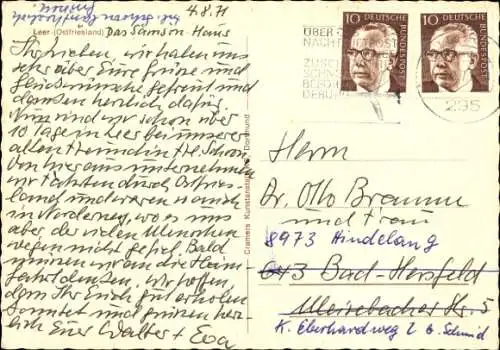 4.8.71
Leer (Ostfriesland) Das Samson-Haus
Ihr Lieben, wir haben uns
sehr über Eure Grüße und
Glückwünsche gefreut und
danken herzlich dafür.
Nun sind wir schon über
10 Tage in Leer bei unserer
alten Freundin Frl. Schoon.
Von hier aus unternehmen
wir Fahrten durch Ostfries-
land und waren auch
in Norderney, wo es uns
aber der vielen Menschen
wegen nicht gefiel. Bald
müssen wir an die Heim-
fahrt denken. Wir hoffen,
dass Ihr Euch gut erholen
konntet und grüßen herz-
lich Euer Walter + Eva
Cramers Kunstanstalt KG, Dortmund
ÜBER
NACHT
POST
ZUSCH
SCHN
BEFÖR
DERUN
10
DEUTSCHE BUNDESPOST
10
DEUTSCHE BUNDESPOST
295
Herrn
Dr. Otto Braunn
und Frau
8973 Hindelang
643 Bad-Hersfeld
Meisebacher Str. 5
K. Eberhardweg 2 b. Schmid